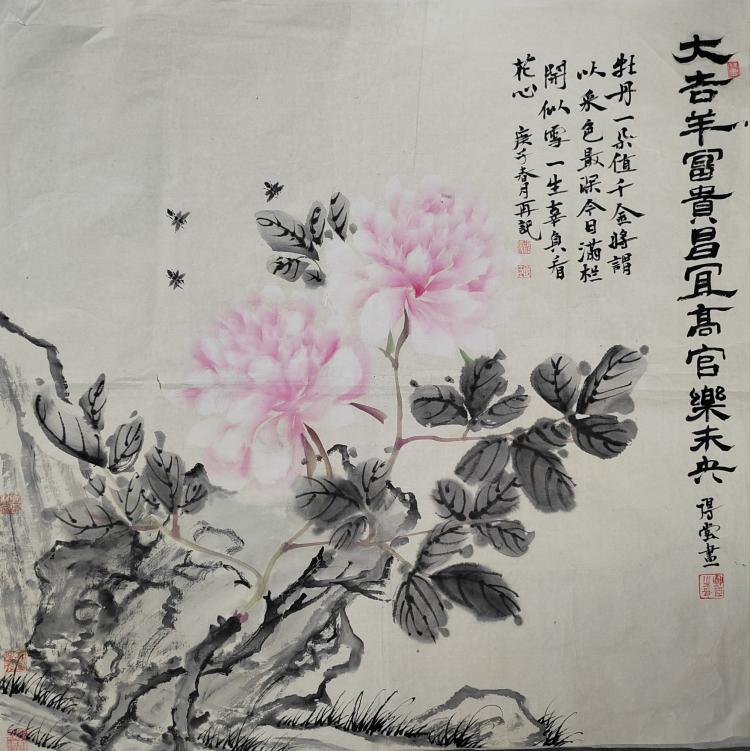 大吉羊富貴昌宜高官樂未央
得堂畫
牡丹一朵值千金將謂
以來色最深今日滿栏
開似雪一生辜負看
花心 庚子春月再記